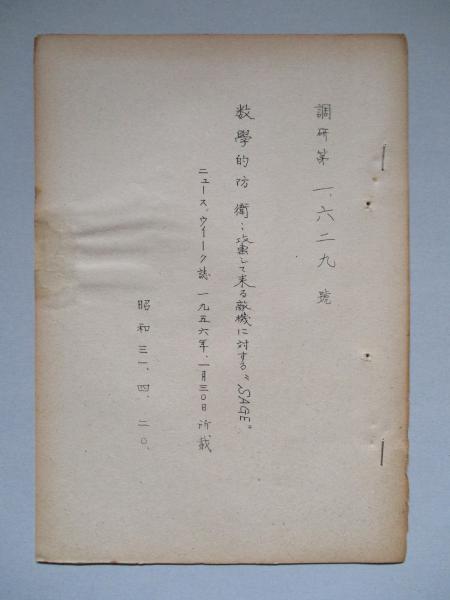 調研第一、六二九號
数學的防衛：攻撃して来る敵機に対する"SAGE"
ニュース、ウイーク誌 一九五六年、一月三〇日 所載
昭和三一、四、二〇、